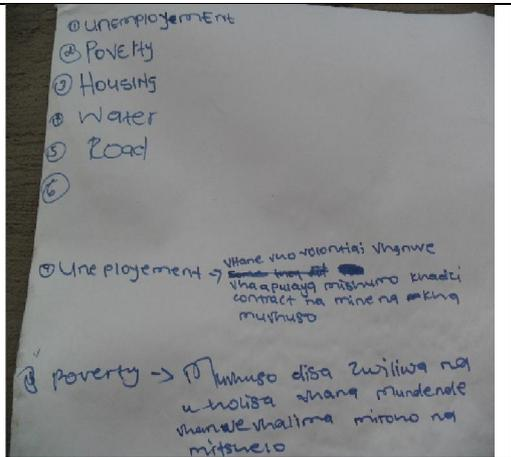 ① UNEMPloyemENt
② POVERty
③ HOUSINg
④ Water
⑤ Road
⑥
⑦ Uneployement → vhane vho volontiai vhanwe
vhaapulaya mishumo khadzi
contract na mine na kha
muvhuso
⑧ poverty → Muvhuso disa zwiliwa na
u holisa vhana mundende
vhanwe vhalima miroho na
mitshelo